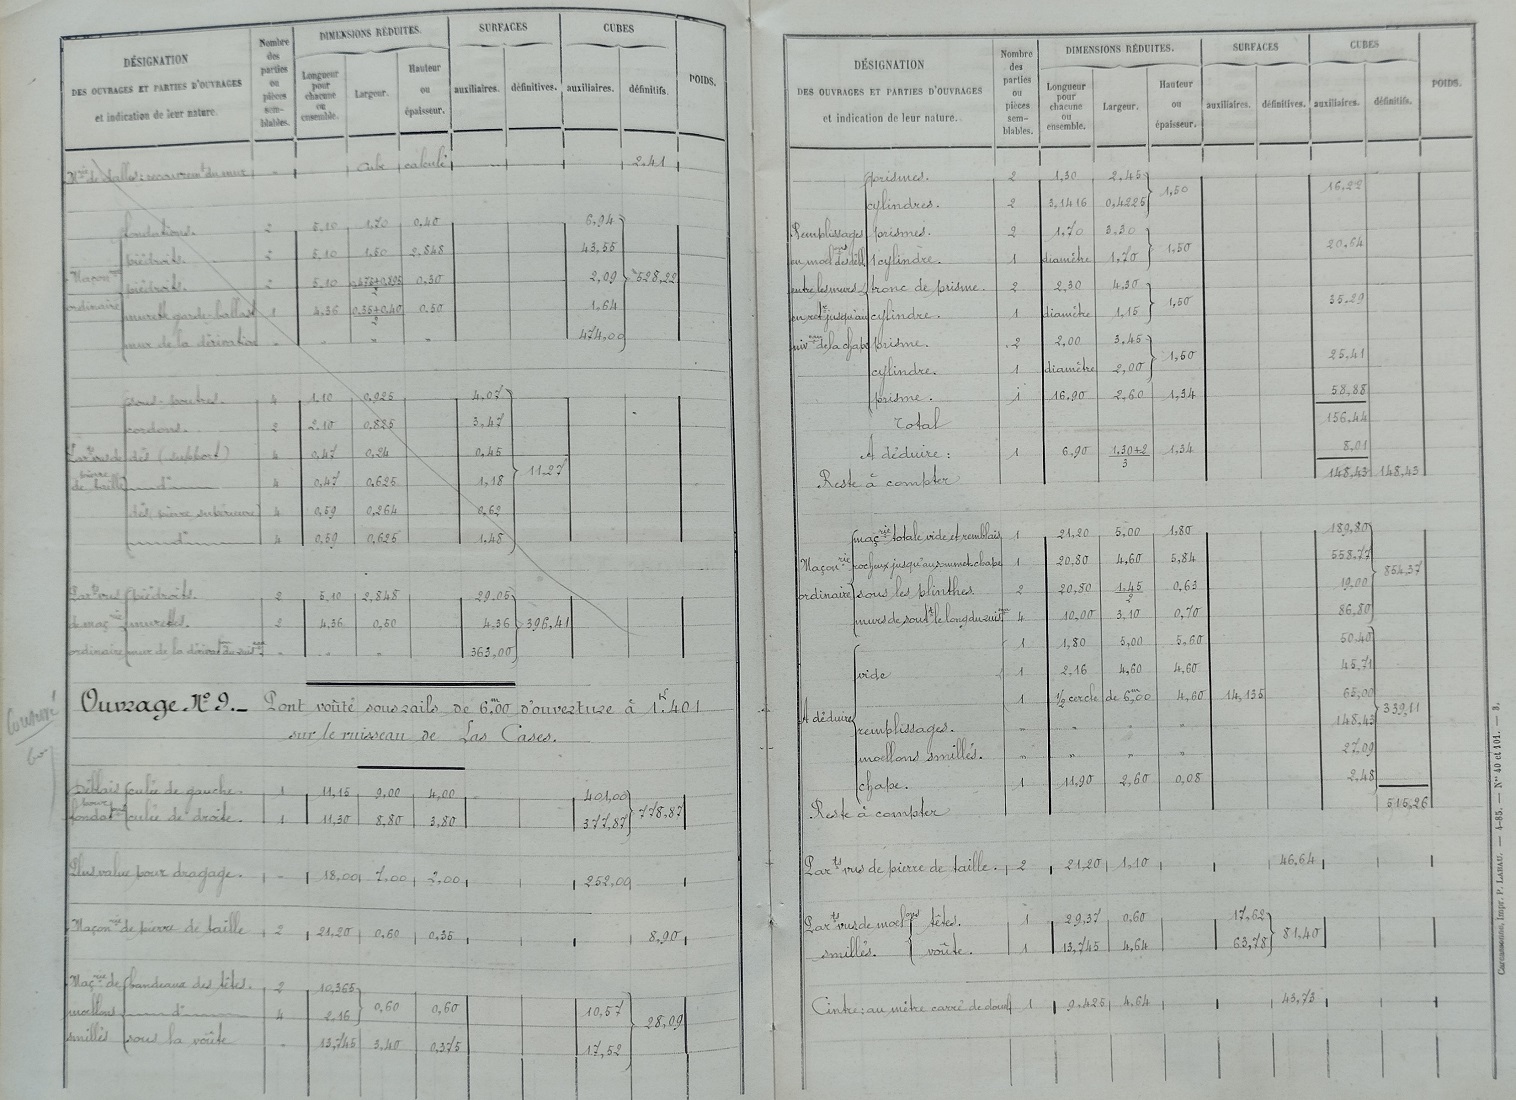 DÉSIGNATION
DES OUVRAGES ET PARTIES D'OUVRAGES
et indication de leur nature.
Nombre des parties ou pièces semblables.
DIMENSIONS RÉDUITES.
Longueur pour chacune ou ensemble.
Largeur.
Hauteur ou épaisseur.
SURFACES
auxiliaires. définitives.
CUBES
auxiliaires. définitifs.
POIDS.
Mrie de dalles : recouvremt du mur " cube calculé 2.41
Maçonrie ordinaire
fondations. 2 5.10 1.70 0.40 6.94
piédroits. 2 5.10 1.50 2.848 43.55
piédroits. 2 5.10 0.30 2.09 528.22
muret garde-ballast 1 4.36 0.35+0.40/2 0.50 1.64
mur de la dérivation " " " " 474.00
sous-poutres. 4 1.10 0.925 4.07
cordons. 2 2.10 0.825 3.47
dés (support) 4 0.47 0.24 0.45
de taille d° 4 0.47 0.625 1.18 11.27
dés pierre supérieure 4 0.59 0.264 0.62
d° 4 0.59 0.625 1.48
Parts vus de maçrie ordinaire
piédroits. 2 5.10 2.848 29.05
murettes. 2 4.36 0.50 4.36 396.41
mur de la dérivation " " " 363.00
Ouvrage N° 9. _ Pont voûté sous rails de 6m.00 d'ouverture à 1k.401
sur le ruisseau de Las Cases.
Déblais pour fondations
culée de gauche. 1 11.15 9.00 4.00 401.00
culée de droite. 1 11.30 8.80 3.80 377.87 778.87
Plus value pour dragage. - 18.00 7.00 2.00 252.00
Maçonrie de pierre de taille 2 21.20 0.60 0.35 8.90
Maçrie de moellons smillés
bandeaux des têtes. 2 10.365
d° 4 2.16 0.60 0.60 10.57 28.09
sous la voûte " 13.745 3.40 0.375 17.52
DÉSIGNATION
DES OUVRAGES ET PARTIES D'OUVRAGES
et indication de leur nature.
Nombre des parties ou pièces semblables.
DIMENSIONS RÉDUITES.
Longueur pour chacune ou ensemble.
Largeur.
Hauteur ou épaisseur.
SURFACES
auxiliaires. définitives.
CUBES
auxiliaires. définitifs.
POIDS.
prismes. 2 1.30 2.45 1.50 16.22
cylindres. 2 3.1416 0.4225
Remplissages
prismes. 2 1.70 3.30 1.50 20.64
cylindre. 1 diamètre 1.70
entre les murs
tronc de prisme. 2 2.30 4.30 1.50 35.29
cylindre. 1 diamètre 1.15
prisme. 2 2.00 3.45 1.60 25.41
cylindre. 1 diamètre 2.00
prisme. 1 16.90 2.60 1.34 58.88
Total 156.44
A déduire : 1 6.90 1.30+2/3 1.34 8.01
Reste à compter 148.43 148.43
Maçonrie ordinaire
maçrie totale vide et remblais 1 21.20 5.00 1.80 189.80
rocheux jusqu'au sommet chape 1 20.80 4.60 5.84 558.77 854.37
sous les plinthes 2 20.80 1.45/2 0.63 19.00
murs de soutt le long du 4 10.00 3.10 0.70 86.80
A déduire
vide
1 1.80 5.00 5.60 50.40
1 2.16 4.60 4.60 45.71
1 ½ cercle de 6m.00 4.60 14.135 65.00
remplissages. " " " " 148.43 339.11
moellons smillés. " " " " 27.09
chape. 1 11.90 2.60 0.08 2.48
Reste à compter 515.26
Parts vus de pierre de taille. 2 21.20 1.10 46.64
Parts vus de moellons smillés.
têtes. 1 29.37 0.60 17.62
voûte. 1 13.745 4.64 63.78 81.40
Cintre : au mètre carré de douelle 1 9.425 4.64 43.73
Carcassonne, Impr. P. LABAU. — 4-85. — Nos 40 et 101. — 3.